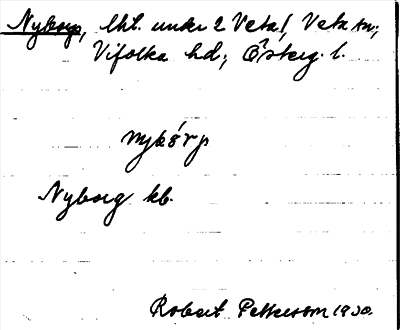 Nyborg, lht. under 2 Veta, Veta sn;
Vifolka hd; Österg. l.
Nyborg kb.
Robert Pettersson 1930.